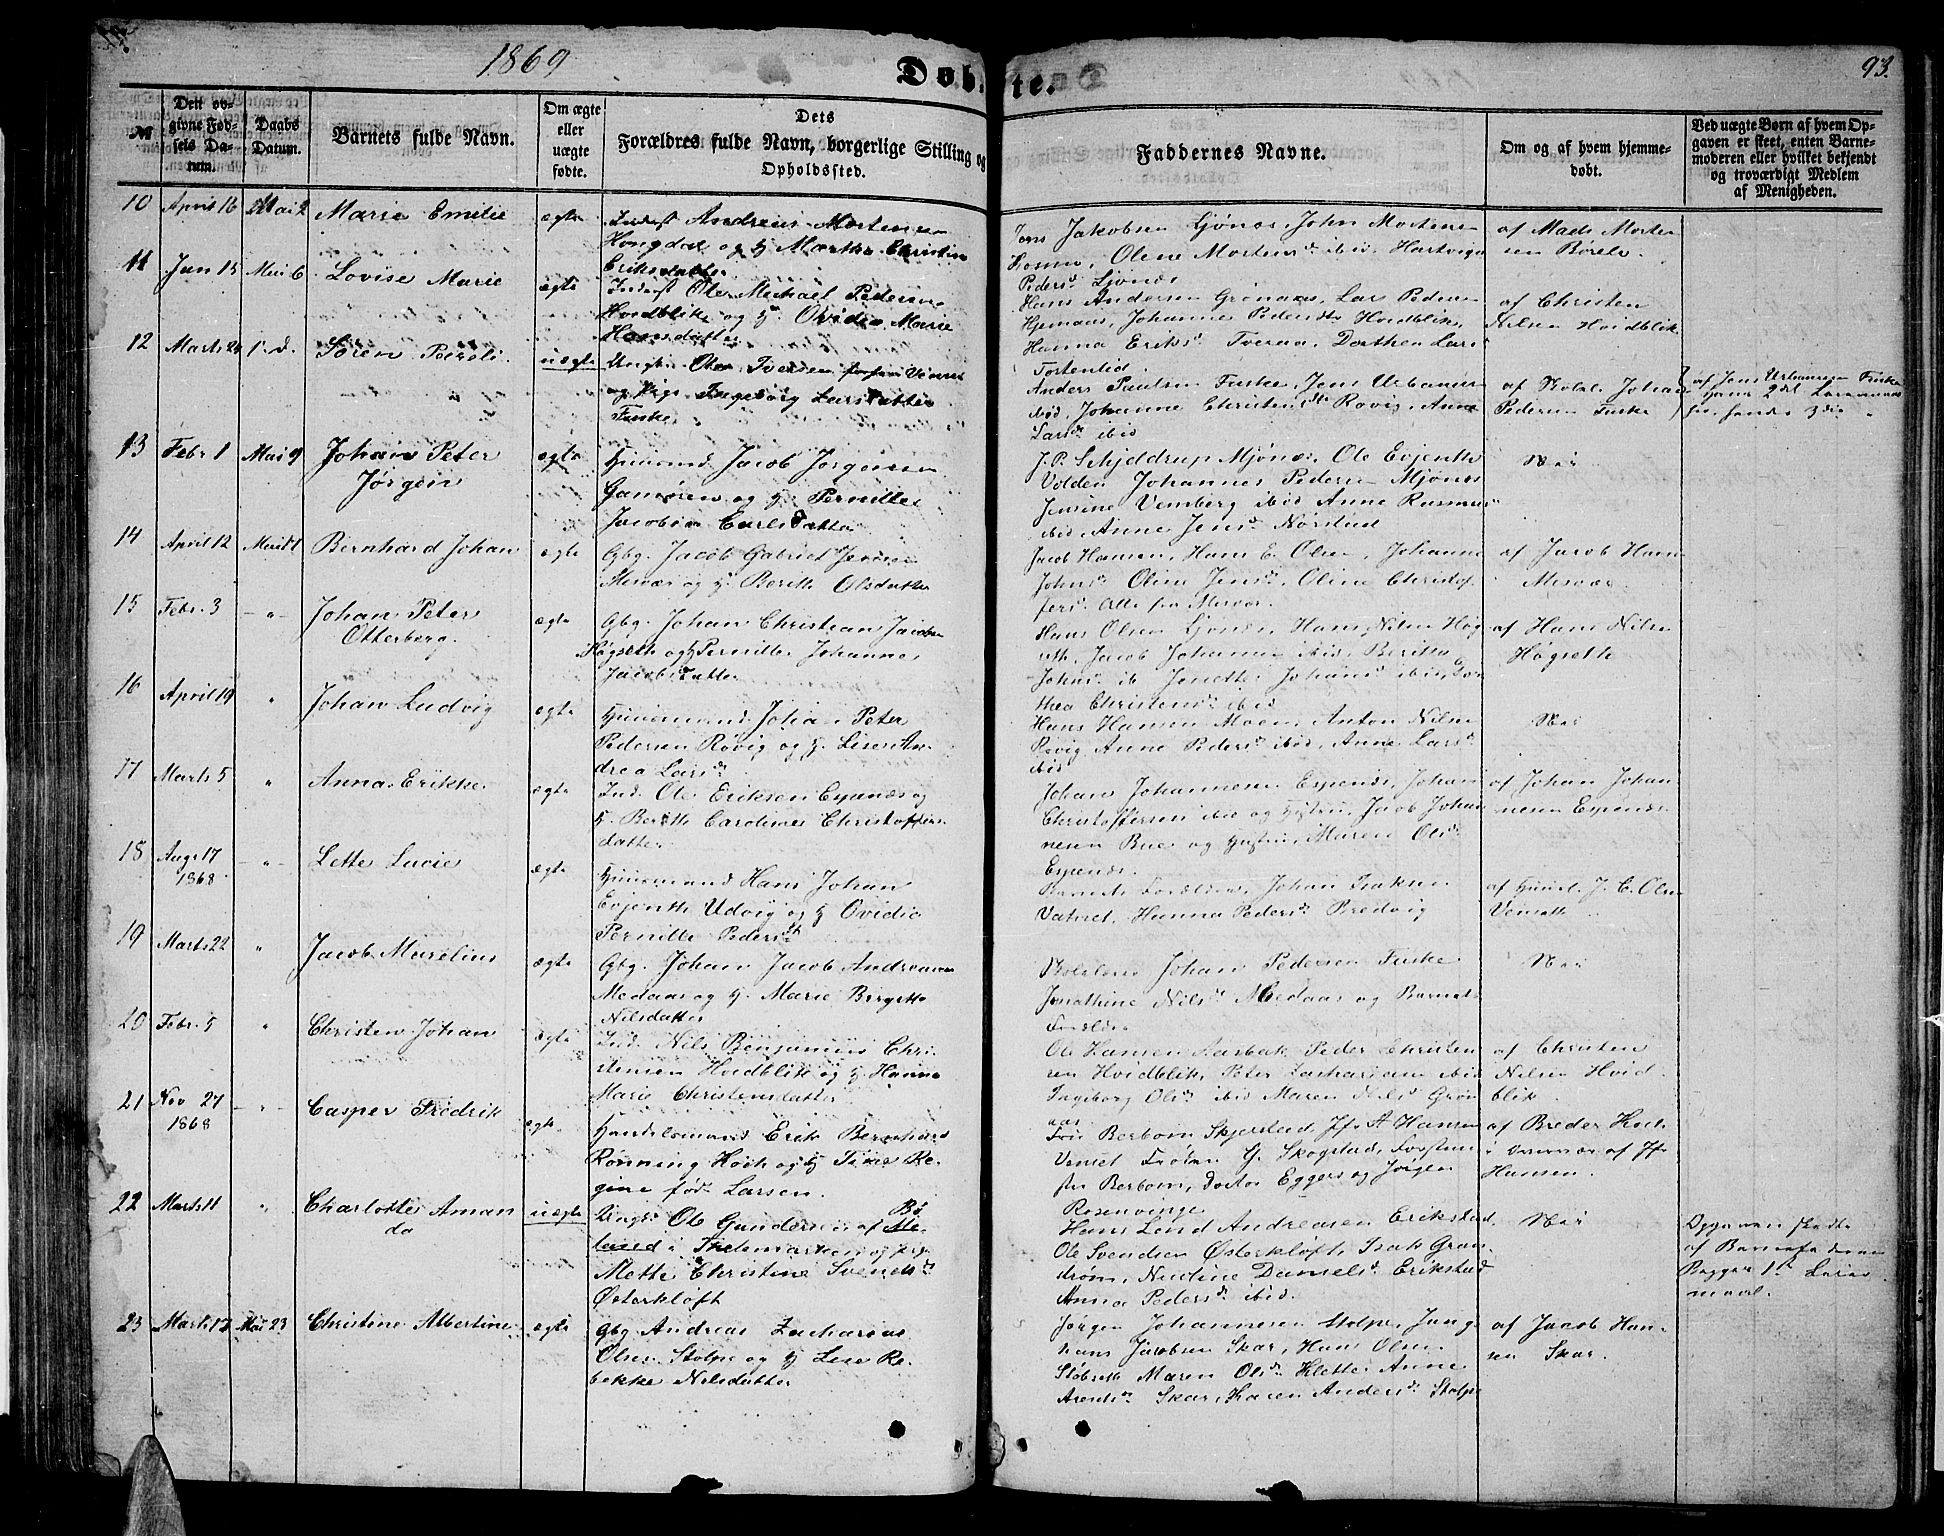 1869
Døbte.
93.
№
Den opgivne Fødsels Datum.
Daabs Datum.
Barnets fulde Navn.
Om ægte eller uægte fødte.
Dets Forældres fulde Navn, borgerlige Stilling og Opholdssted.
Faddernes Navne.
Om og af hvem hjemmedøbt.
Ved uægte Børn af hvem Opgaven er skeet, enten Barnemoderen eller hvilket bekjendt og troværdigt Medlem af Menigheden.
10 April 16 Mai 2 Marie Emilie ægte
Inderst Andreas Mortensen
og H. Martha Christine
Eriksdatter
Jens Jakobsen Ljønes, John Mortens
Olene Mortensd. ibid Hartvigа
Pedersd. Ljønes
af Mads Morten
sen Børelv.
11 Jan 15 Mai 6 Lovise Marie ægte
Inderst Ole Michael Pedersen
Hvidblik og H. Ovidia Marie
Hansdatter
Hans Andersen Grønaas, Lars Peders
Hjemaas, Johanne Pedersd. Hvidblik,
Hanna Eriksd. Tveraa, Dorthea Lars
af Christen
Nilsen Hvidblik
12 Marts 24 Søren Peroli uægte
Ungk. Ole Iversen
og Pige Ingeborg Larsdatter
Fuske
Anders Paulsen Fuske, Jens Urbanus
ibid, Johanne Christensdt Røvig, Anne
Larsd. ibid
af Skolel. Johan
Pedersen Fuske
af Jens Urbanusen Fuske
13 Febr 1 Mai 9 Johan Peter
Jørgen
ægte
Huusmand Jacob Jørgensen
og H. Pernille
Jacobine Carlsdatter
J. P. Schjeldrup Mjønes, Ole Evjenth
Volden Johannes Pedersen Mjønes
Jensine Vemberg ibid Anne Rasmus
ibid Anne Jensd. Nørstad
Nei
14 April 12 Bernhard Johan ægte
Gbg. Jacob Gabriel Jensen
Mesvær og H. Berith Olsdatter
Jacob Hansen, Hans E. Olsen, Johanne
Johnsd. Oline Jensd. Oline Christof
fersd. Alle fra Mesvær.
af Jacob Hans
Mesvær
15 Febr. 3 " Johan Peter
Otterberg.
ægte
Gbg. Johan Christian Jacobsen
Høgseth og H Pernille Johanne
Jacobsdatter
Hans Olsen Ljønes, Hans Nilsen Høg
seth, Jacob Johannes ibid, Beritha
Johnsd. ib Jonette Johansd ibid, Dor
thea Christensd. ibid
af Hans Nilsen
Høgseth
16 April 19 " Johan Ludvig ægte
Huusmand Johan Peter
Pedersen Røvig og H. Lise An
drea Larsd.
Hans Hansen Moen, Anton Nilsen
Røvig Anne Pedersd. ibid, Anne Larsd.
ibid
Nei
17 Marts 5 " Anna Erikke ægte
Ind. Ole Eriksen Espenæs og
H. Berith Caroline Christoffers
datter.
Johan Johannesen Espenes, Johan
Christoffersen ibid og Hustru, Jacob Johan
nesen Bue og Hustru, Maren Olsd.
Espenes.
af Johan Johan
nesen Espenes
18 Aug 17
1868
" Lette Lucie ægte
Huusmand Hans Johan
Evjenth Udvig og H Ovidia
Pernille Pedersd.
Barnets Forældre, Johan Isaksen
Vatnet, Hanna Pedersd. Bredvig
af J. C. Olsen
19 Marts 22 " Jacob Marelius ægte
Gbg. Johan Jacob Andreasen
Medaas og H. Marie Birgitte
Nilsdatter
Skolelærer Johan Pedersen Fuske
Jonathine Nilsd. Medaas og Barnets
Forældre
Nei
20 Febr. 5 " Christen Johan ægte
Ind. Nils Benjamin Chri
stensen Hvidblik og H. Hanna
Marie Christensdatter
Ole Hansen Aarbak Peder Christen
sen Hvidblik, Peter Zachariasen ibid
Ingeborg Olsd. ibid Maren Nilsd Grøn
aas
af Christen
Nilsen Hvid
blik
21 Nov 27
1868
" Casper Fredrik ægte
Handelsmand Erik Bernhard
Rønning Høch og H. Tine Re
gine fød. Larsen.
Fru Berbom Skjerstad, Jfr A Hansen
Venset Frøken G. Skogstad, Forstm
ster Berbom, Doctor Eggers og Jørgen
Rosenvinge
af Breder Høch
i Overvær af Jfr
Hansen.
22 Marts 11 " Charlotte Aman
da
uægte
Ungk. Ole Gundersen af Bø
i Thelemarken og Pige
Mette Christine Svendsd.
Østerkløft
Hans Lind Andreasen Erikstad,
Ole Svendsen Østerkløft, Isak Grøn
drøm, Nudine Danielsd. Erikstad
Anna Pedersd. ibid.
Nei
Opgaven skedte
af Barnefaderen
Begges 1ste Leier
maal.
23 Marts 17 Mai 23 Christine Albertine ægte
Gbg Andreas Zacharias
Olsen Stolpe og H Lise Re
bekke Nilsdatter
Jørgen Johannesen Stolpe, Jung
Hans Jacobsen Skar, Hans Olsen
Støbseth Maren Olsd. Klette Anne
Arentsd. Skar, Karen Andersd. Stolpe
af Jacob Han
sen Skar.